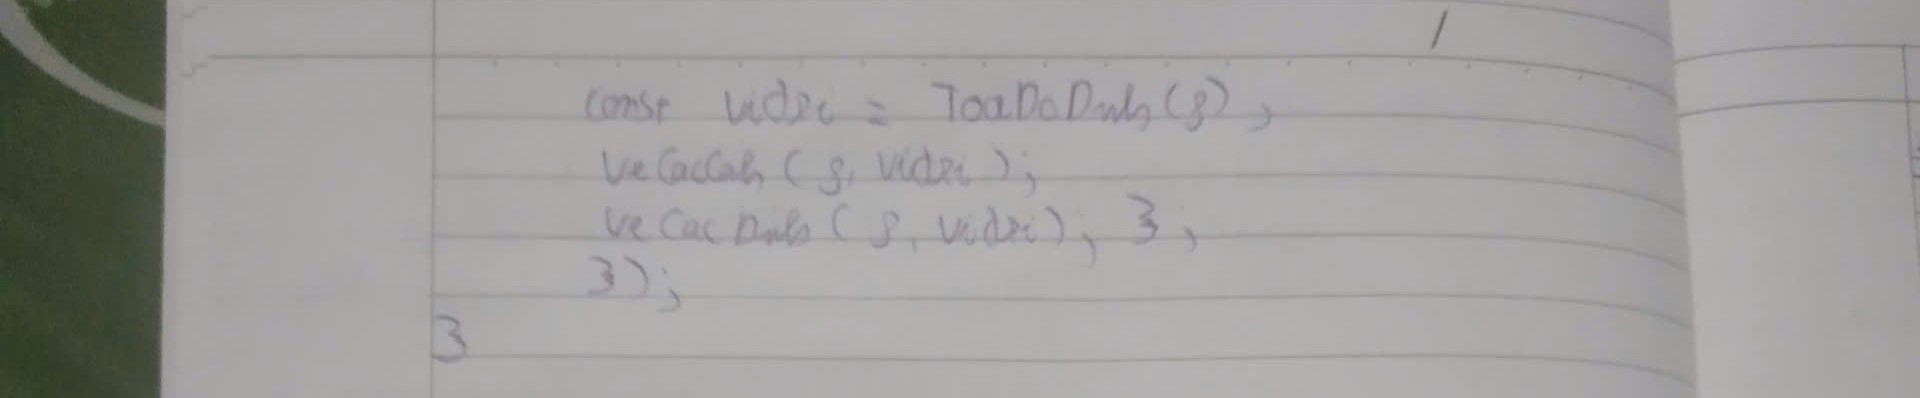 const vidzi = ToaDoDinh(g);
VeCacCah(g, vidzi);
VeCacDinh(g, vidzi); };
});
}